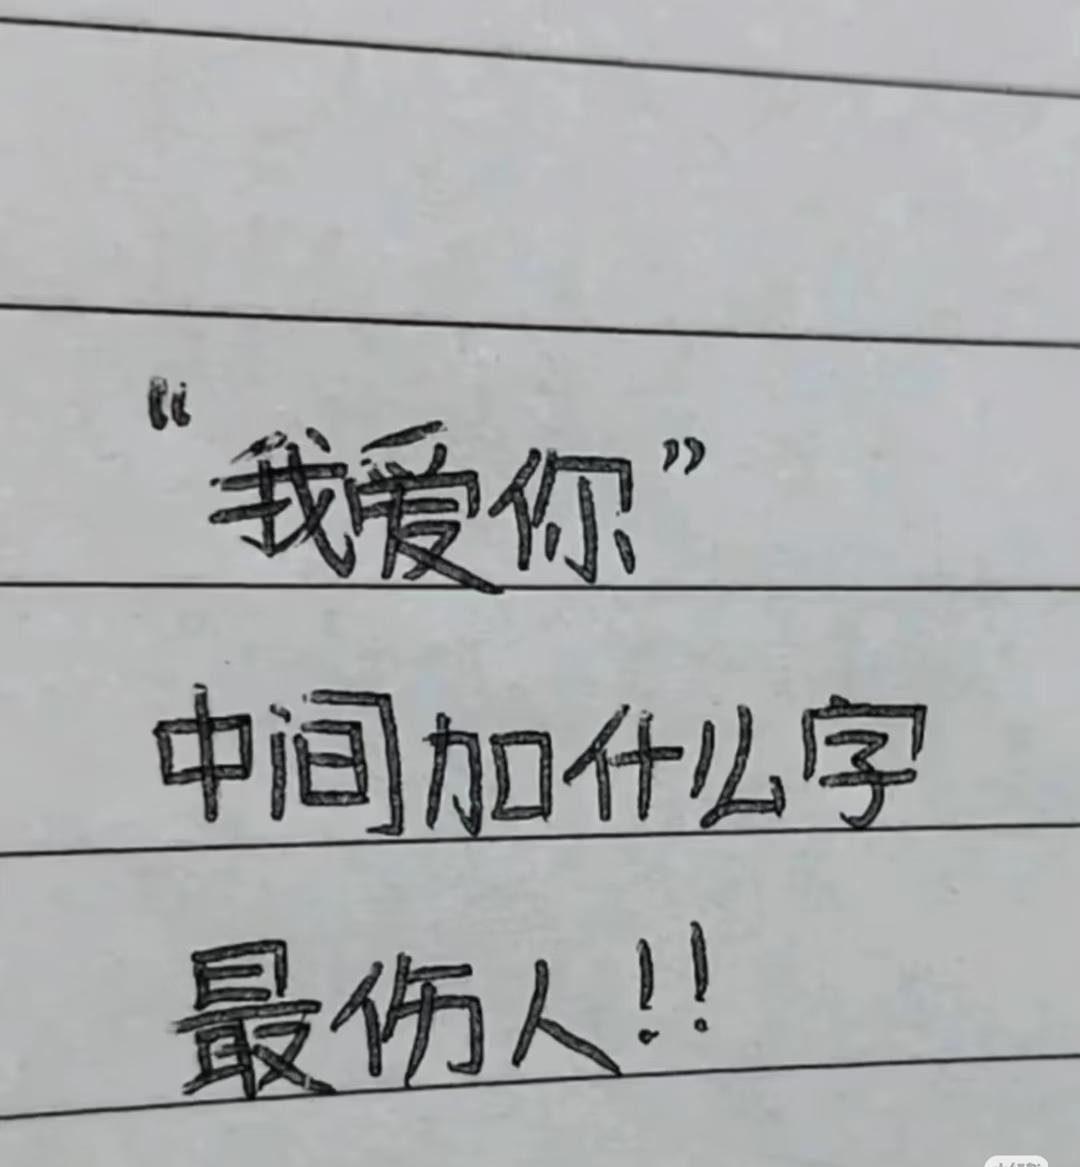 “我爱你”
中间加什么字
最伤人!!